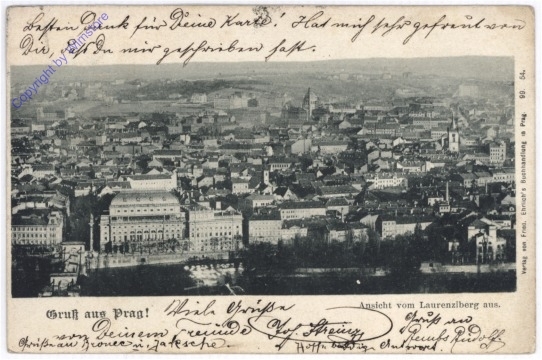 Besten Dank für Deine Karte! Hat mich sehr gefreut von
Dir, daß Du mir geschrieben hast.
Copyright by akrosimss
Verlag von Fried. Ehrlich's Buchhandlung in Prag. 99. 54.
Gruß aus Prag!
Ansicht vom Laurenziberg aus.
Viele Grüße
von Deinem Freunde
Grüße an und
Gruß an Rudolf.
Antwort.